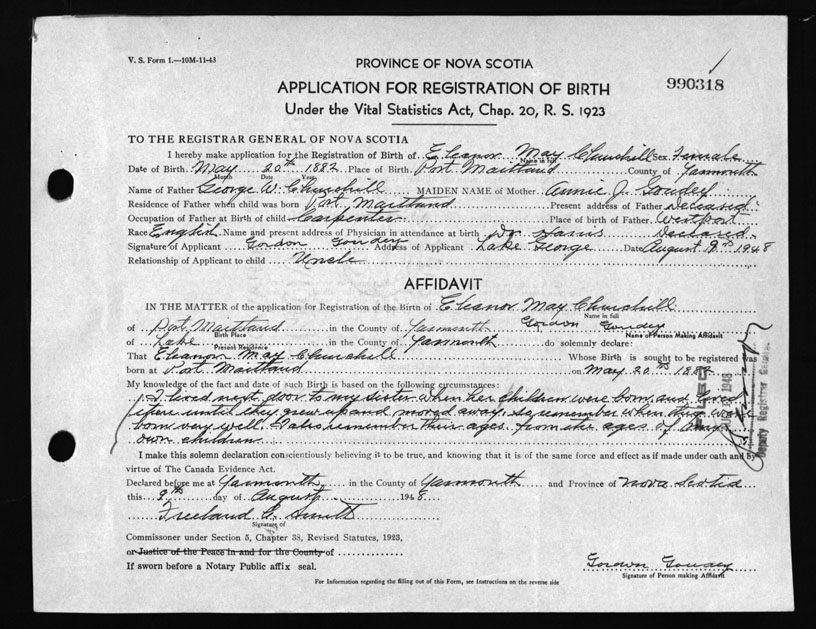 V. S. Form 1.—10M-11-43
PROVINCE OF NOVA SCOTIA
990318
APPLICATION FOR REGISTRATION OF BIRTH
Under the Vital Statistics Act, Chap. 20, R. S. 1923
TO THE REGISTRAR GENERAL OF NOVA SCOTIA
I hereby make application for the Registration of Birth of Eleanor May Churchill Sex Female
Name in full
Date of Birth May 20th 1882 Place of Birth Port Maitland County of Yarmouth
Month Date Year
Name of Father George W. Churchill MAIDEN NAME of Mother Annie J. Goudey
Residence of Father when child was born Port Maitland Present address of Father Deceased
Occupation of Father at Birth of child Carpenter Place of birth of Father Westport
Race English Name and present address of Physician in attendance at birth Dr Deceased
Signature of Applicant Gordon Goudey Address of Applicant Lake George Date August 9th 1948
Relationship of Applicant to child Uncle
AFFIDAVIT
IN THE MATTER of the application for Registration of the Birth of Eleanor May Churchill
Name in full
of Port Maitland in the County of Yarmouth Gordon Goudey
Birth Place Name of Person Making Affidavit
of Lake in the County of Yarmouth do solemnly declare:
Present Residence
That Eleanor May Churchill Whose Birth is sought to be registered was
born at Port Maitland on May 20th 1882
My knowledge of the fact and date of such Birth is based on the following circumstances:
I lived next door to my sister when her children were born and lived
there until they grew up and moved away. So remember when they were
born very well. I also remember their ages from the ages of my
own children
I make this solemn declaration conscientiously believing it to be true, and knowing that it is of the same force and effect as if made under oath and by
virtue of The Canada Evidence Act.
Declared before me at Yarmouth in the County of Yarmouth and Province of Nova Scotia
this 9th day of August 1948
Freeland Smith
Signature of
Commissioner under Section 5, Chapter 38, Revised Statutes, 1923,
or Justice of the Peace in and for the County of
If sworn before a Notary Public affix seal.
Gordon Goudey
Signature of Person making Affidavit
For Information regarding the filling out of this Form, see Instructions on the reverse side
Deputy Registrar General